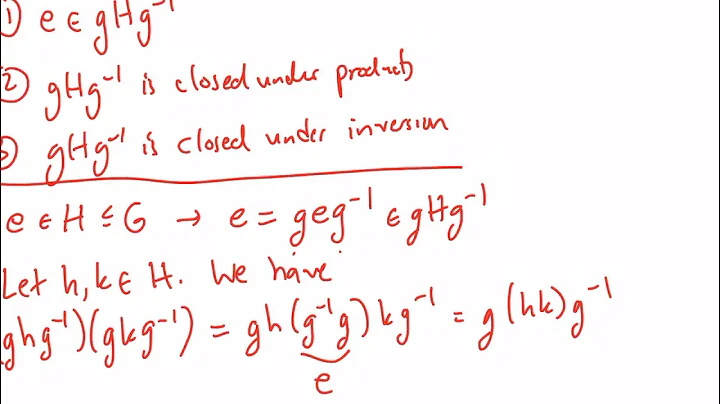 ① e ∈ gHg⁻¹
② gHg⁻¹ is closed under products
③ gHg⁻¹ is closed under inversion
e ∈ H ≤ G → e = geg⁻¹ ∈ gHg⁻¹
Let h, k ∈ H. We have
(ghg⁻¹)(gkg⁻¹) = gh(g⁻¹g)kg⁻¹ = g(hk)g⁻¹
e